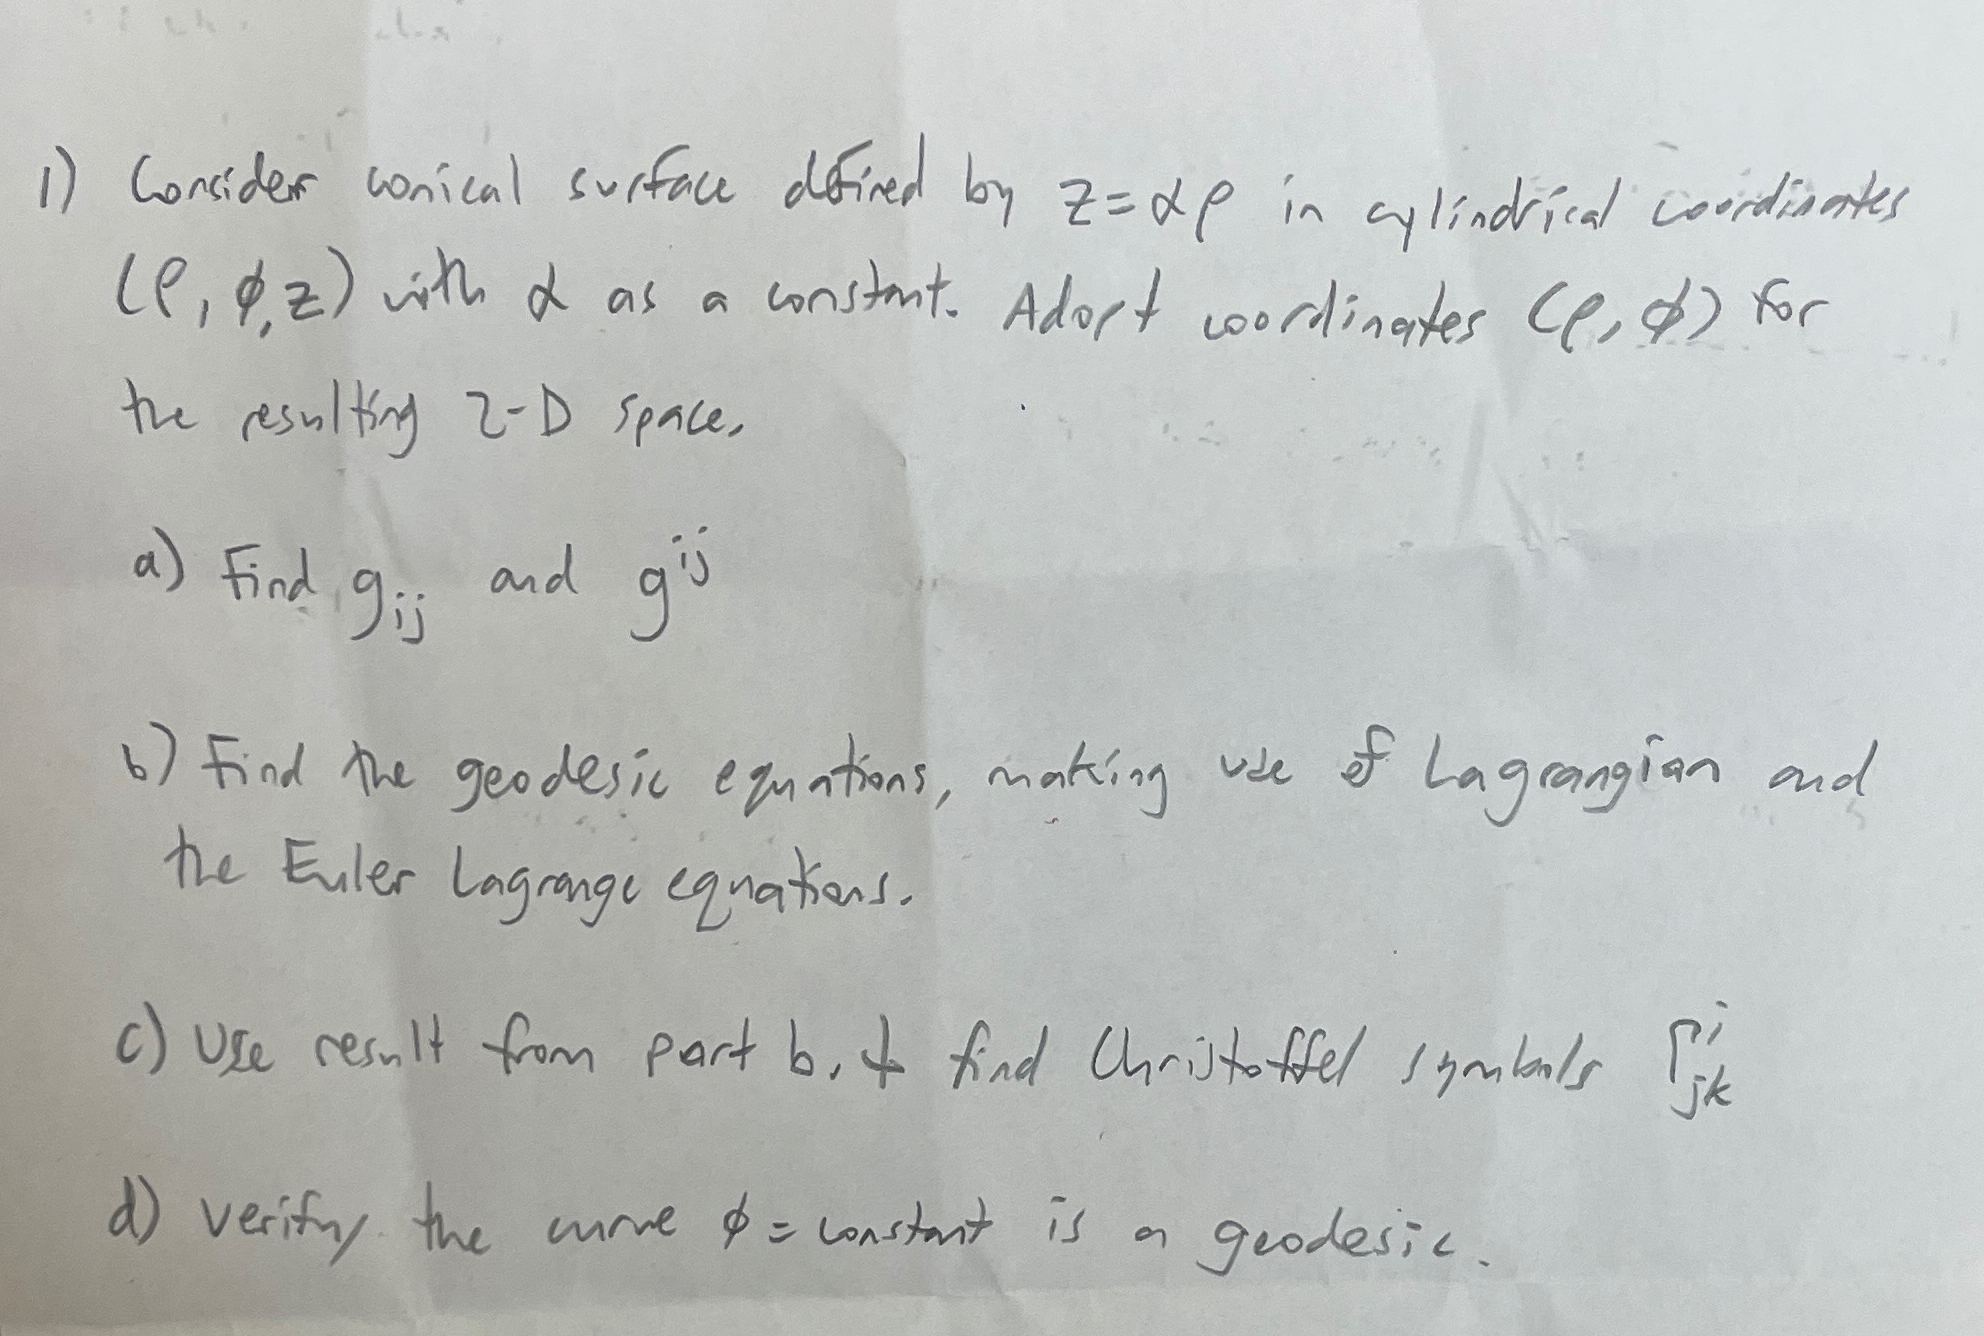 1) Consider conical surface defined by z=αρ in cylindrical coordinates
(ρ, φ, z) with α as a constant. Adopt coordinates (ρ, φ) for
the resulting 2-D space.
a) Find gᵢⱼ and gⁱʲ
b) Find the geodesic equations, making use of Lagrangian and
the Euler Lagrange equations.
c) Use result from part b. to find Christoffel symbols Γⁱⱼₖ
d) Verify the curve φ = constant is a geodesic.